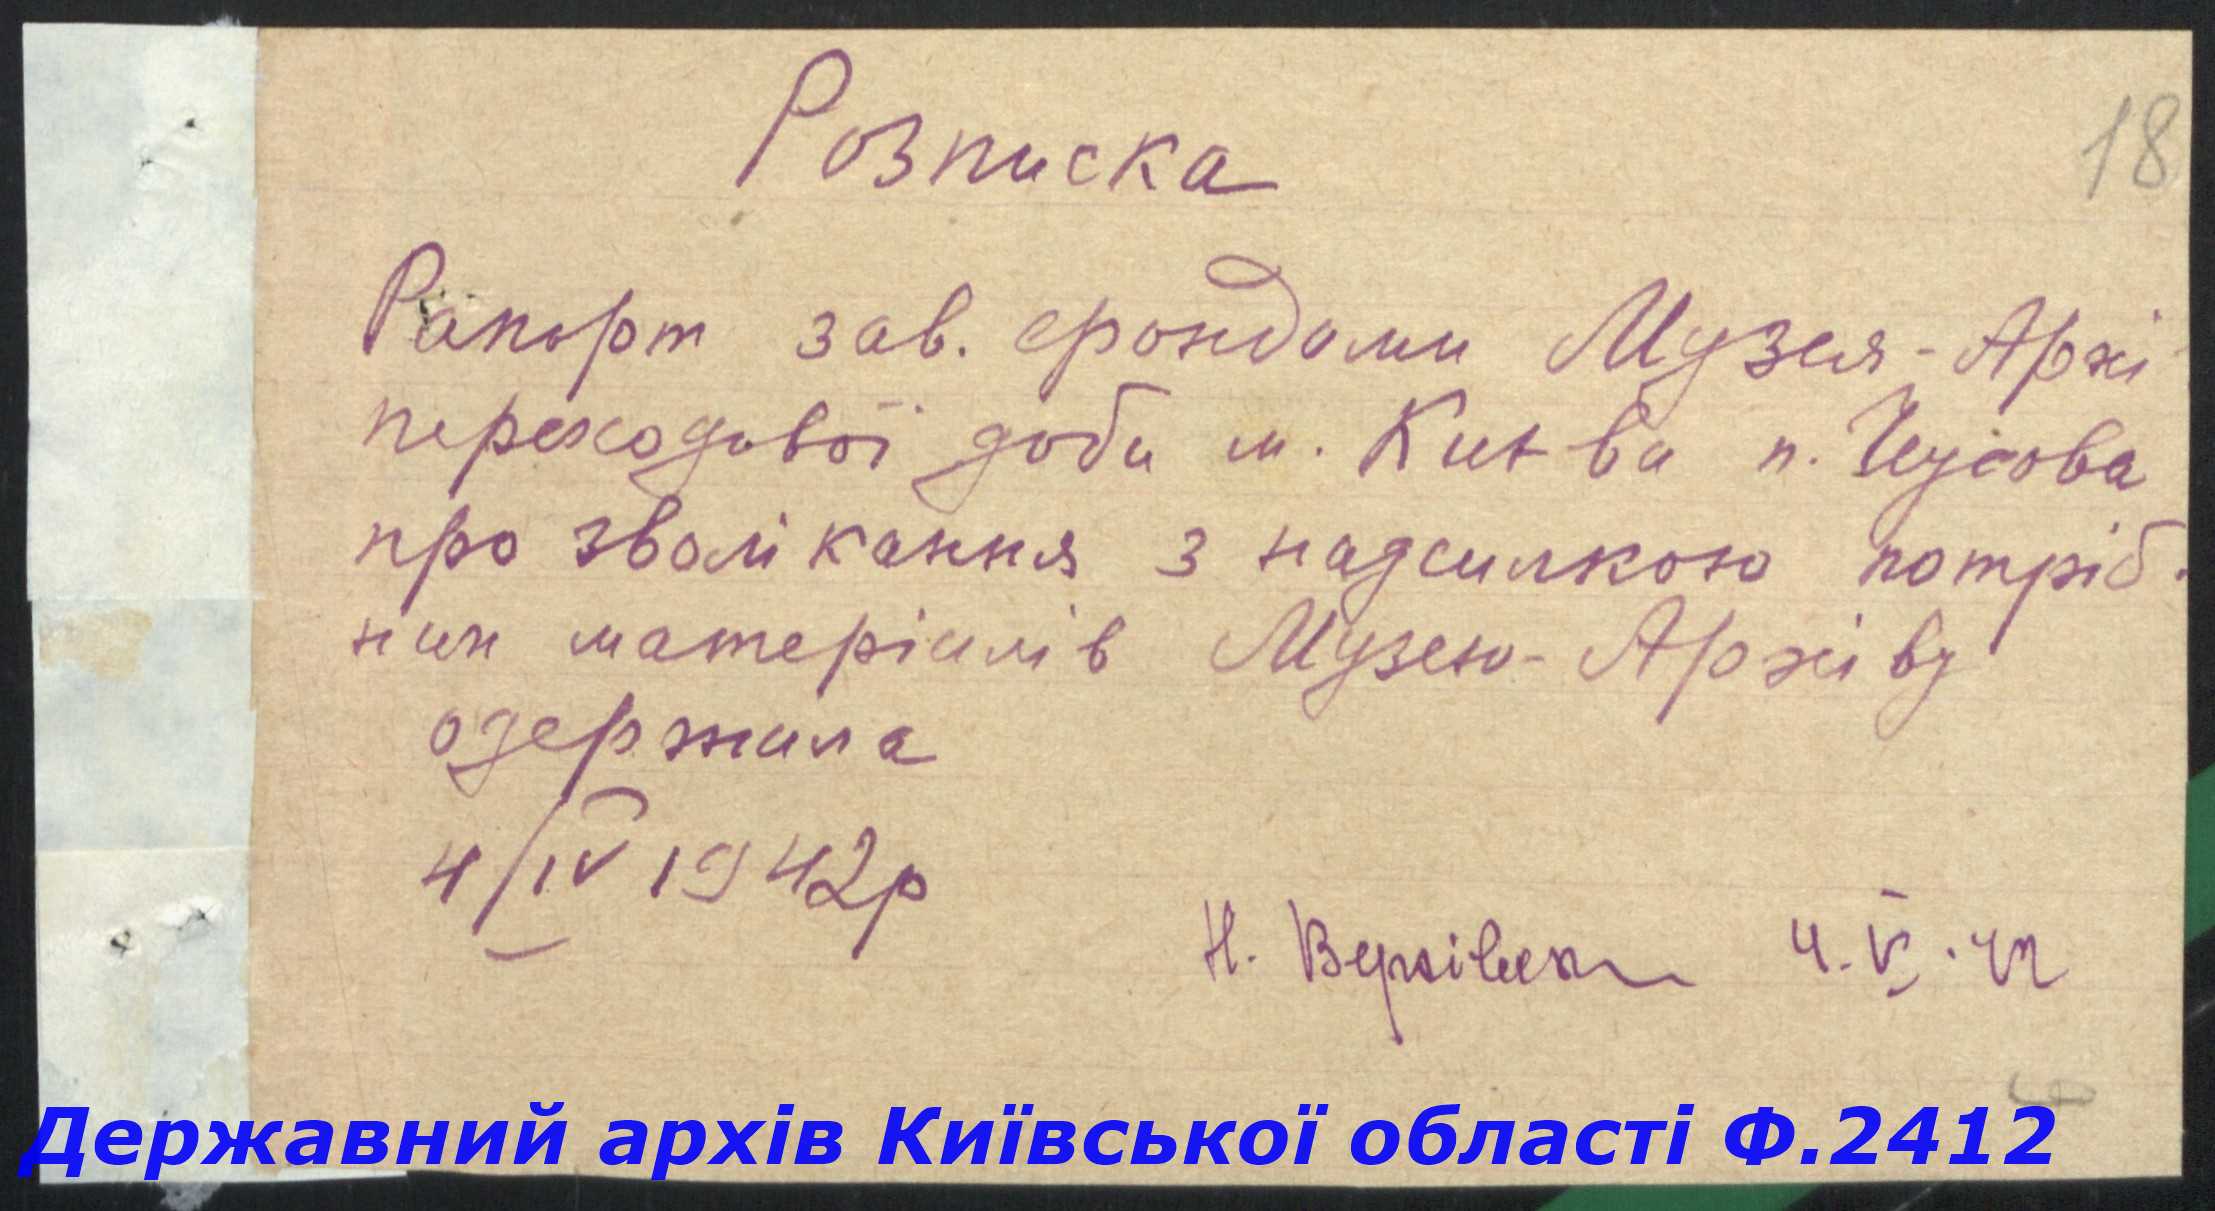 Розписка
18
Рапорт зав. фондами Музея-Архі
переходової доби м. Києва п. Чусова
про зволікання з надсилкою потріб-
них матеріалів Музею-Архіву
одержила
4/IV 1942р
Н. 4.IV.42
Державний архів Київської області Ф.2412